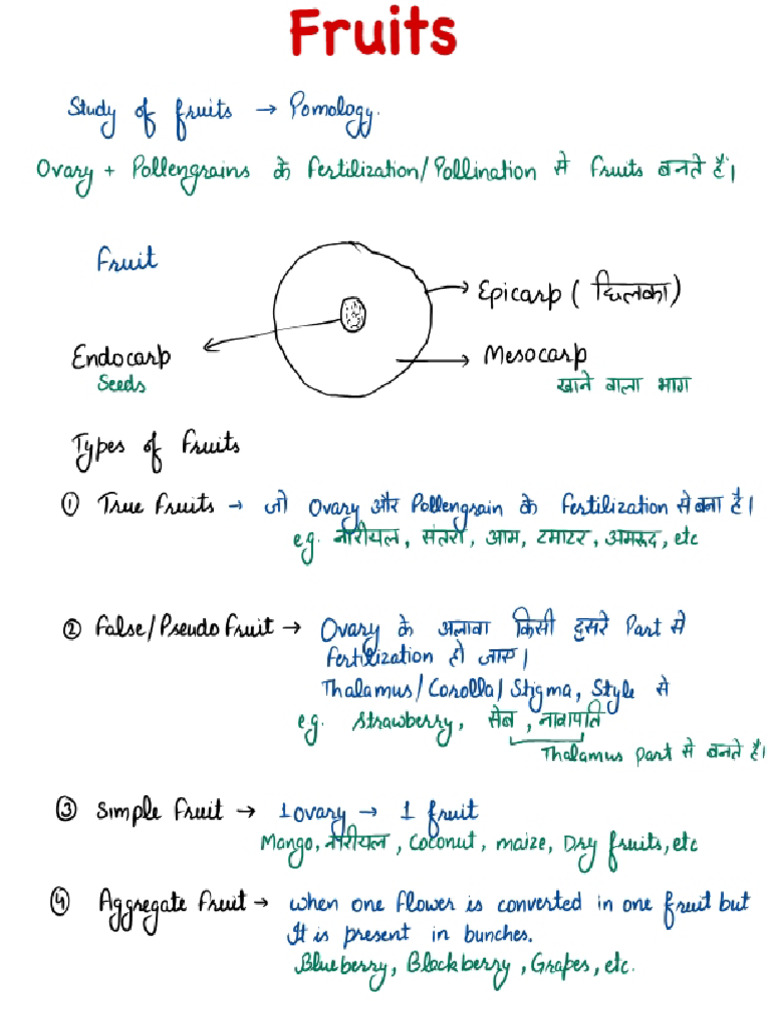 Fruits
Study of fruits → Pomology.
Ovary + Pollengrains के Fertilization/Pollination से Fruits बनते हैं।
Fruit
Epicarp ( छिलका)
Endocarp
Mesocarp
Seeds
खाने वाला भाग
Types of Fruits
① True Fruits → जो Ovary और Pollengrain के Fertilization से बना है।
eg. नारीयल, संतरा, आम, टमाटर, अमरूद, etc
② False/Pseudo Fruit → Ovary के अलावा किसी दुसरे Part से
Fertilization हो जाए।
Thalamus/Corolla/Stigma, Style से
eg. Strawberry, सेब, नाशपाति
Thalamus part से बनते है।
③ Simple Fruit → 1 ovary → 1 fruit
Mango, नारीयल, Coconut, maize, Dry fruits, etc
④ Aggregate Fruit → when one flower is converted in one fruit but
It is present in bunches.
Blueberry, Blackberry, Grapes, etc.